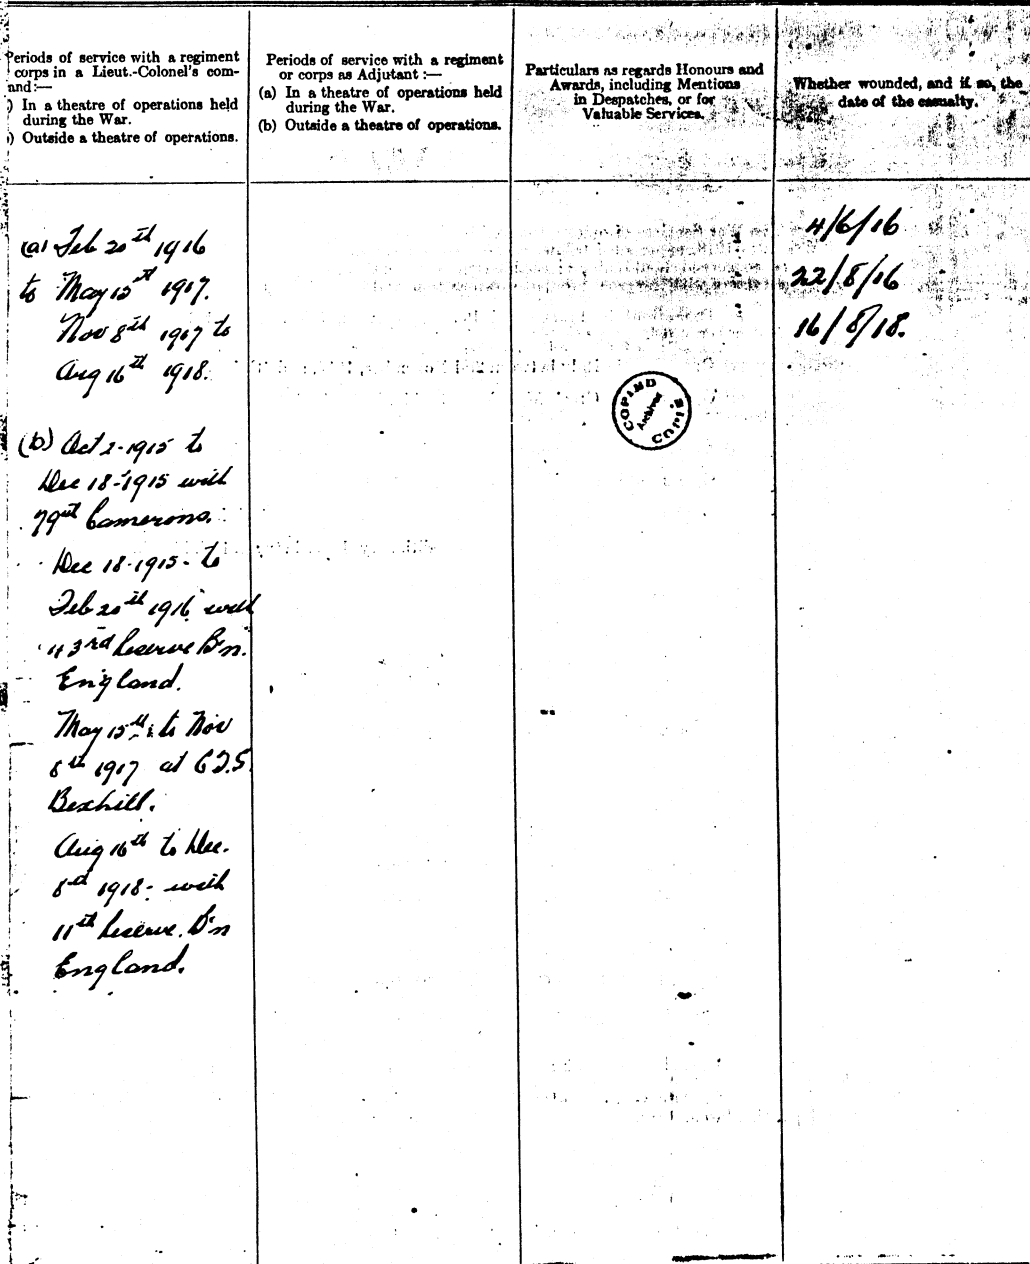 Periods of service with a regiment
corps in a Lieut.-Colonel's com-
and:—
) In a theatre of operations held
during the War.
) Outside a theatre of operations.
Periods of service with a regiment
or corps as Adjutant :—
(a) In a theatre of operations held
during the War.
(b) Outside a theatre of operations.
Particulars as regards Honours and
Awards, including Mentions
in Despatches, or for
Valuable Services.
Whether wounded, and if so, the
date of the casualty.
(a) Feb 20th 1916
to May 15th 1917.
Nov 8th 1917 to
Aug 16th 1918.
(b) Oct 2-1915 to
Dec 18-1915 with
79th Camerons.
Dec 18-1915- to
Feb 20th 1916 with
43rd Reserve B'n.
England.
May 15th to Nov
8th 1917 at C.T.S
Bexhill.
Aug 16th to Dec.
8th 1918- with
11th Reserve. B'n
England.
4/6/16
22/8/16
16/8/18.
COPIED
Archives
COPIÉ